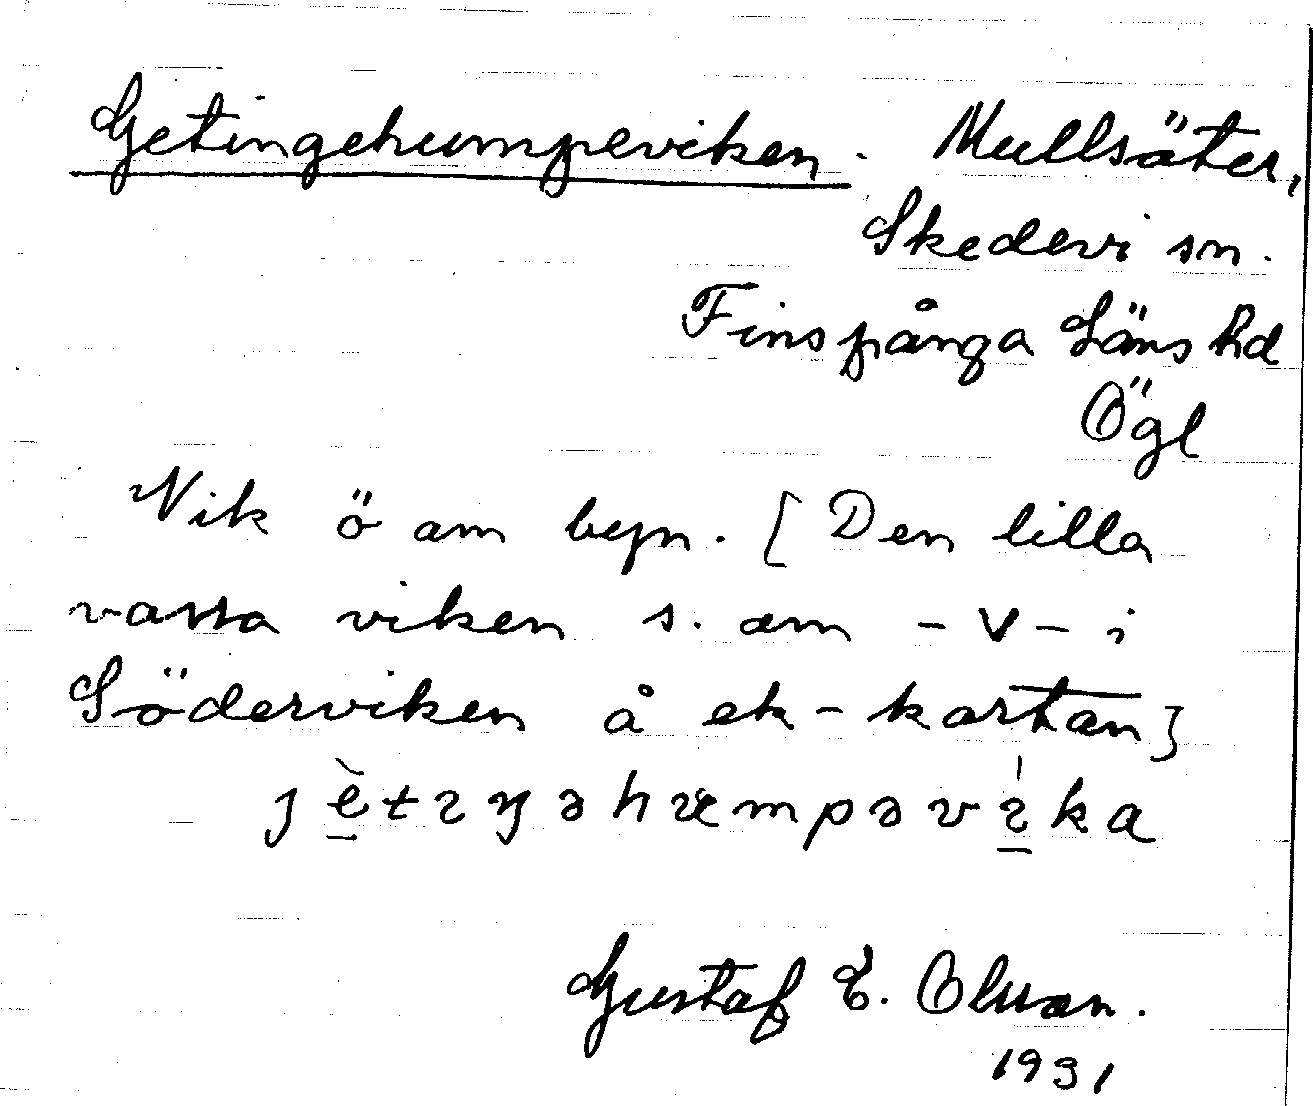 Getingehumpeviken. Mullsäter,
Skedevi sn.
Finspånga Läns hd
Ögl
Vik ö om byn. [Den lilla
vassa viken s. om - V - i
Söderviken å ek-kartan]
jètıŋəhumpəvıka
Gustaf E. Olsson.
1931